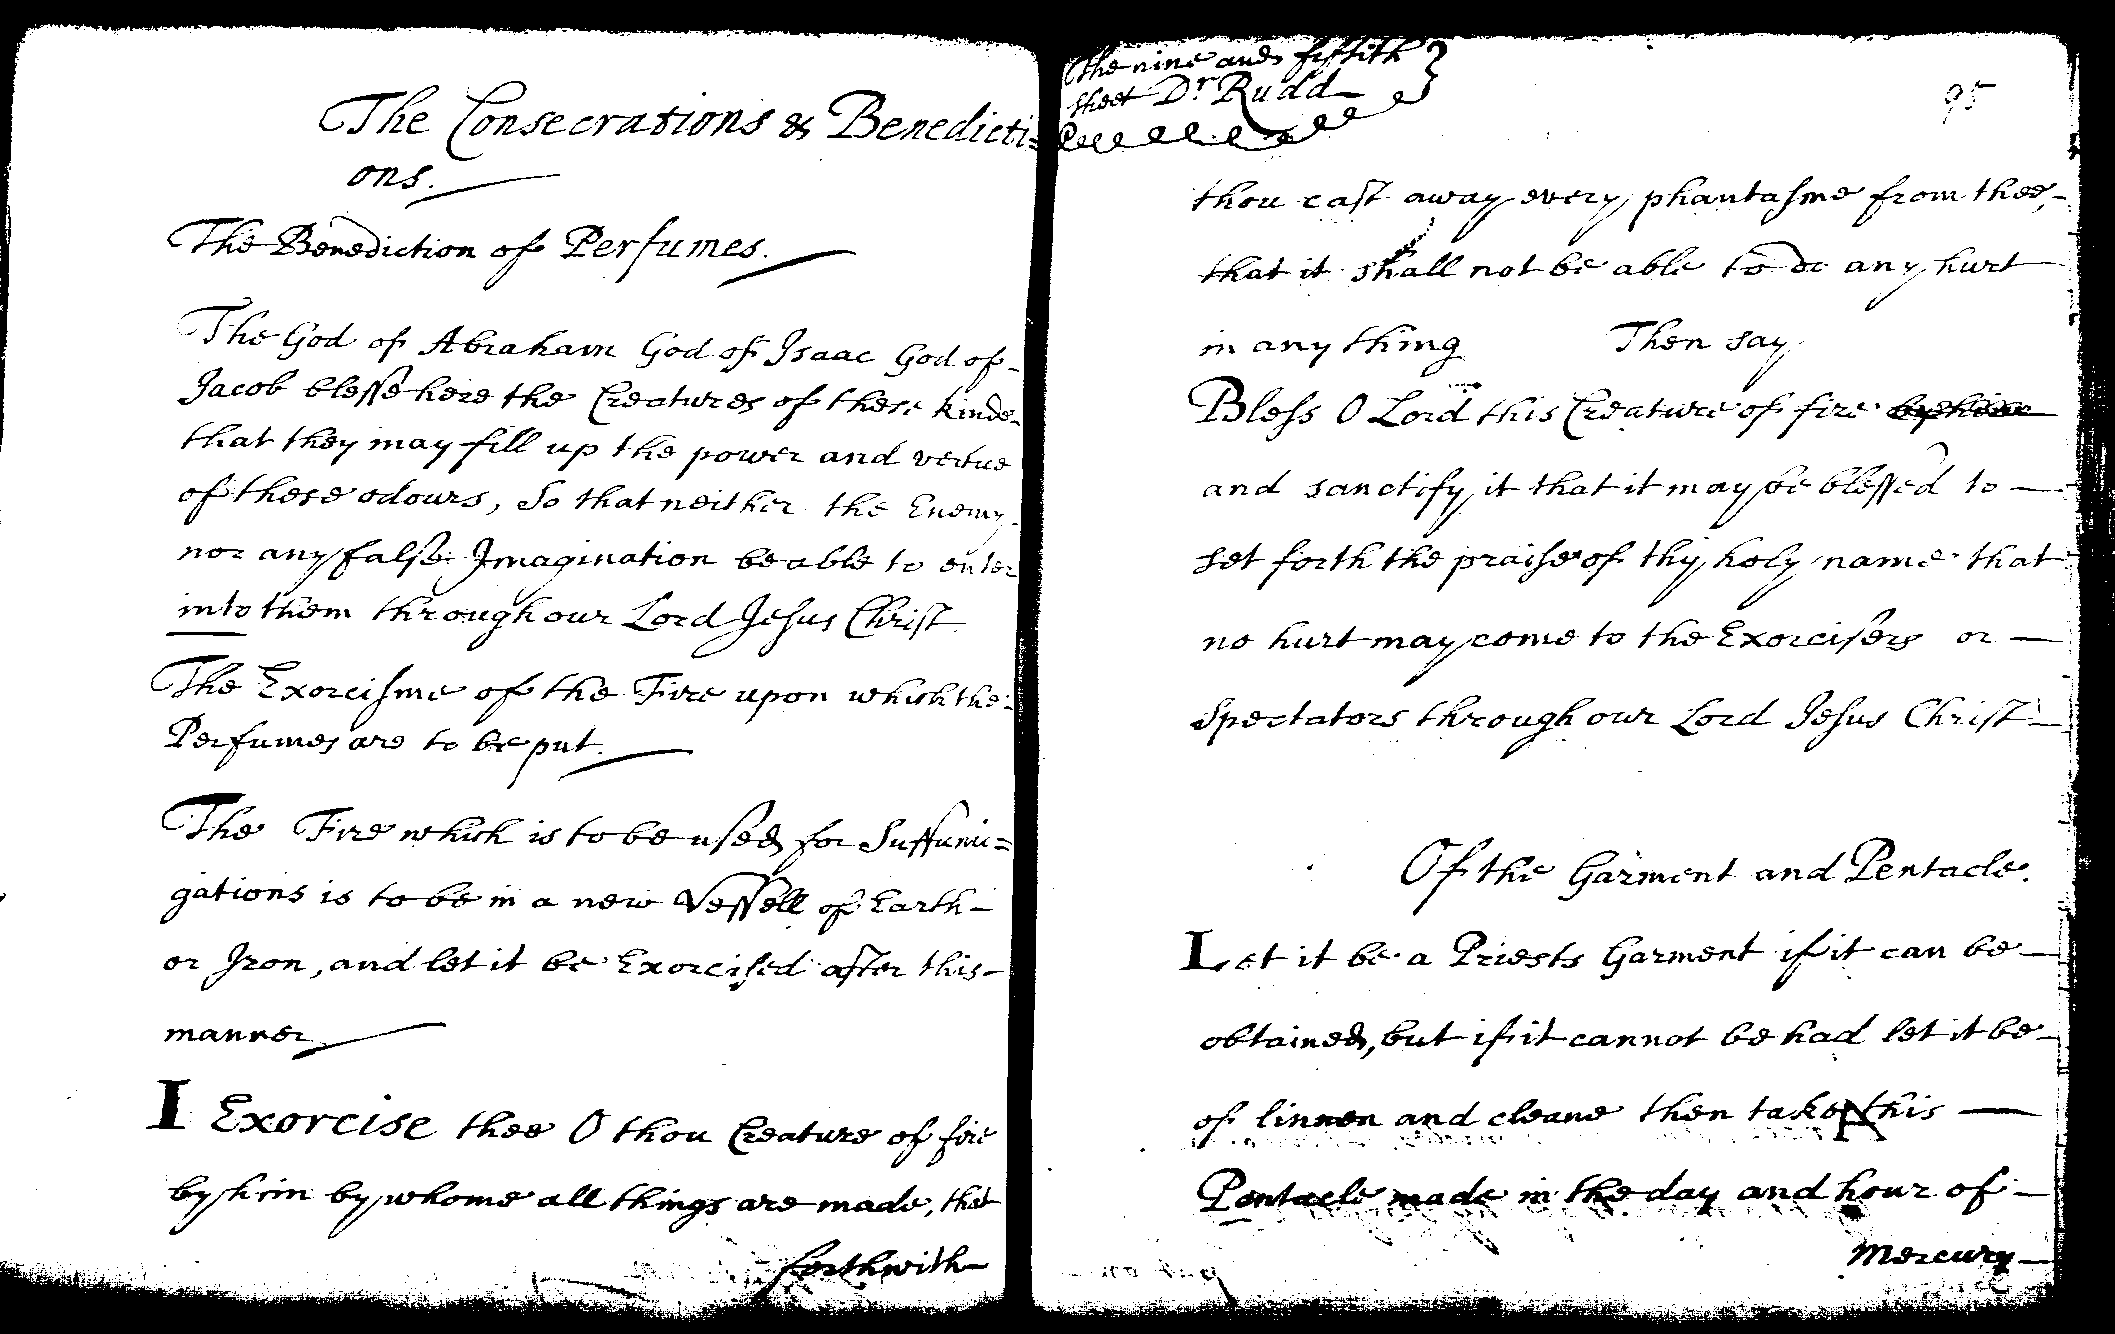 The Consecrations & Benedicti=
ons.
The Benediction of Perfumes.
The God of Abraham God of Isaac God of
Jacob blesse here the Creatures of these kinde
that they may fill up the power and vertue
of these odours, So that neither the Enemy
nor any false Imagination be able to enter
into them through our Lord Jesus Christ
The Exorcisme of the Fire upon which the
Perfumes are to be put.
The Fire which is to be used for Suffumi=
gations is to be in a new Vessell of Earth
or Iron, and let it be Exorcised after this
manner
I Exorcise thee O thou Creature of fire
by him by whome all things are made, that
forthwith
The nine and fiftith
sheet Dr Rudd
95
thou cast away every phantasme from thee,
that it shall not be able to do any hurt
in any thing Then say
Bless O Lord this Creature of fire
and sanctify it that it may be blessed to
set forth the praise of thy holy name that
no hurt may come to the Exorcisers or
Spectators through our Lord Jesus Christ
Of the Garment and Pentacle.
Let it be a Priests Garment if it can be
obtained, but if it cannot be had let it be
of linnen and cleane then take this
Pentacle made in the day and hour of
Mercury